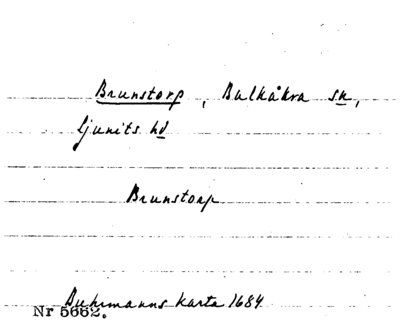 Brunstorp, Balkåkra sn,
Ljunits hd
Brunstorp
Buhrmanns karta 1684
Nr 5662.